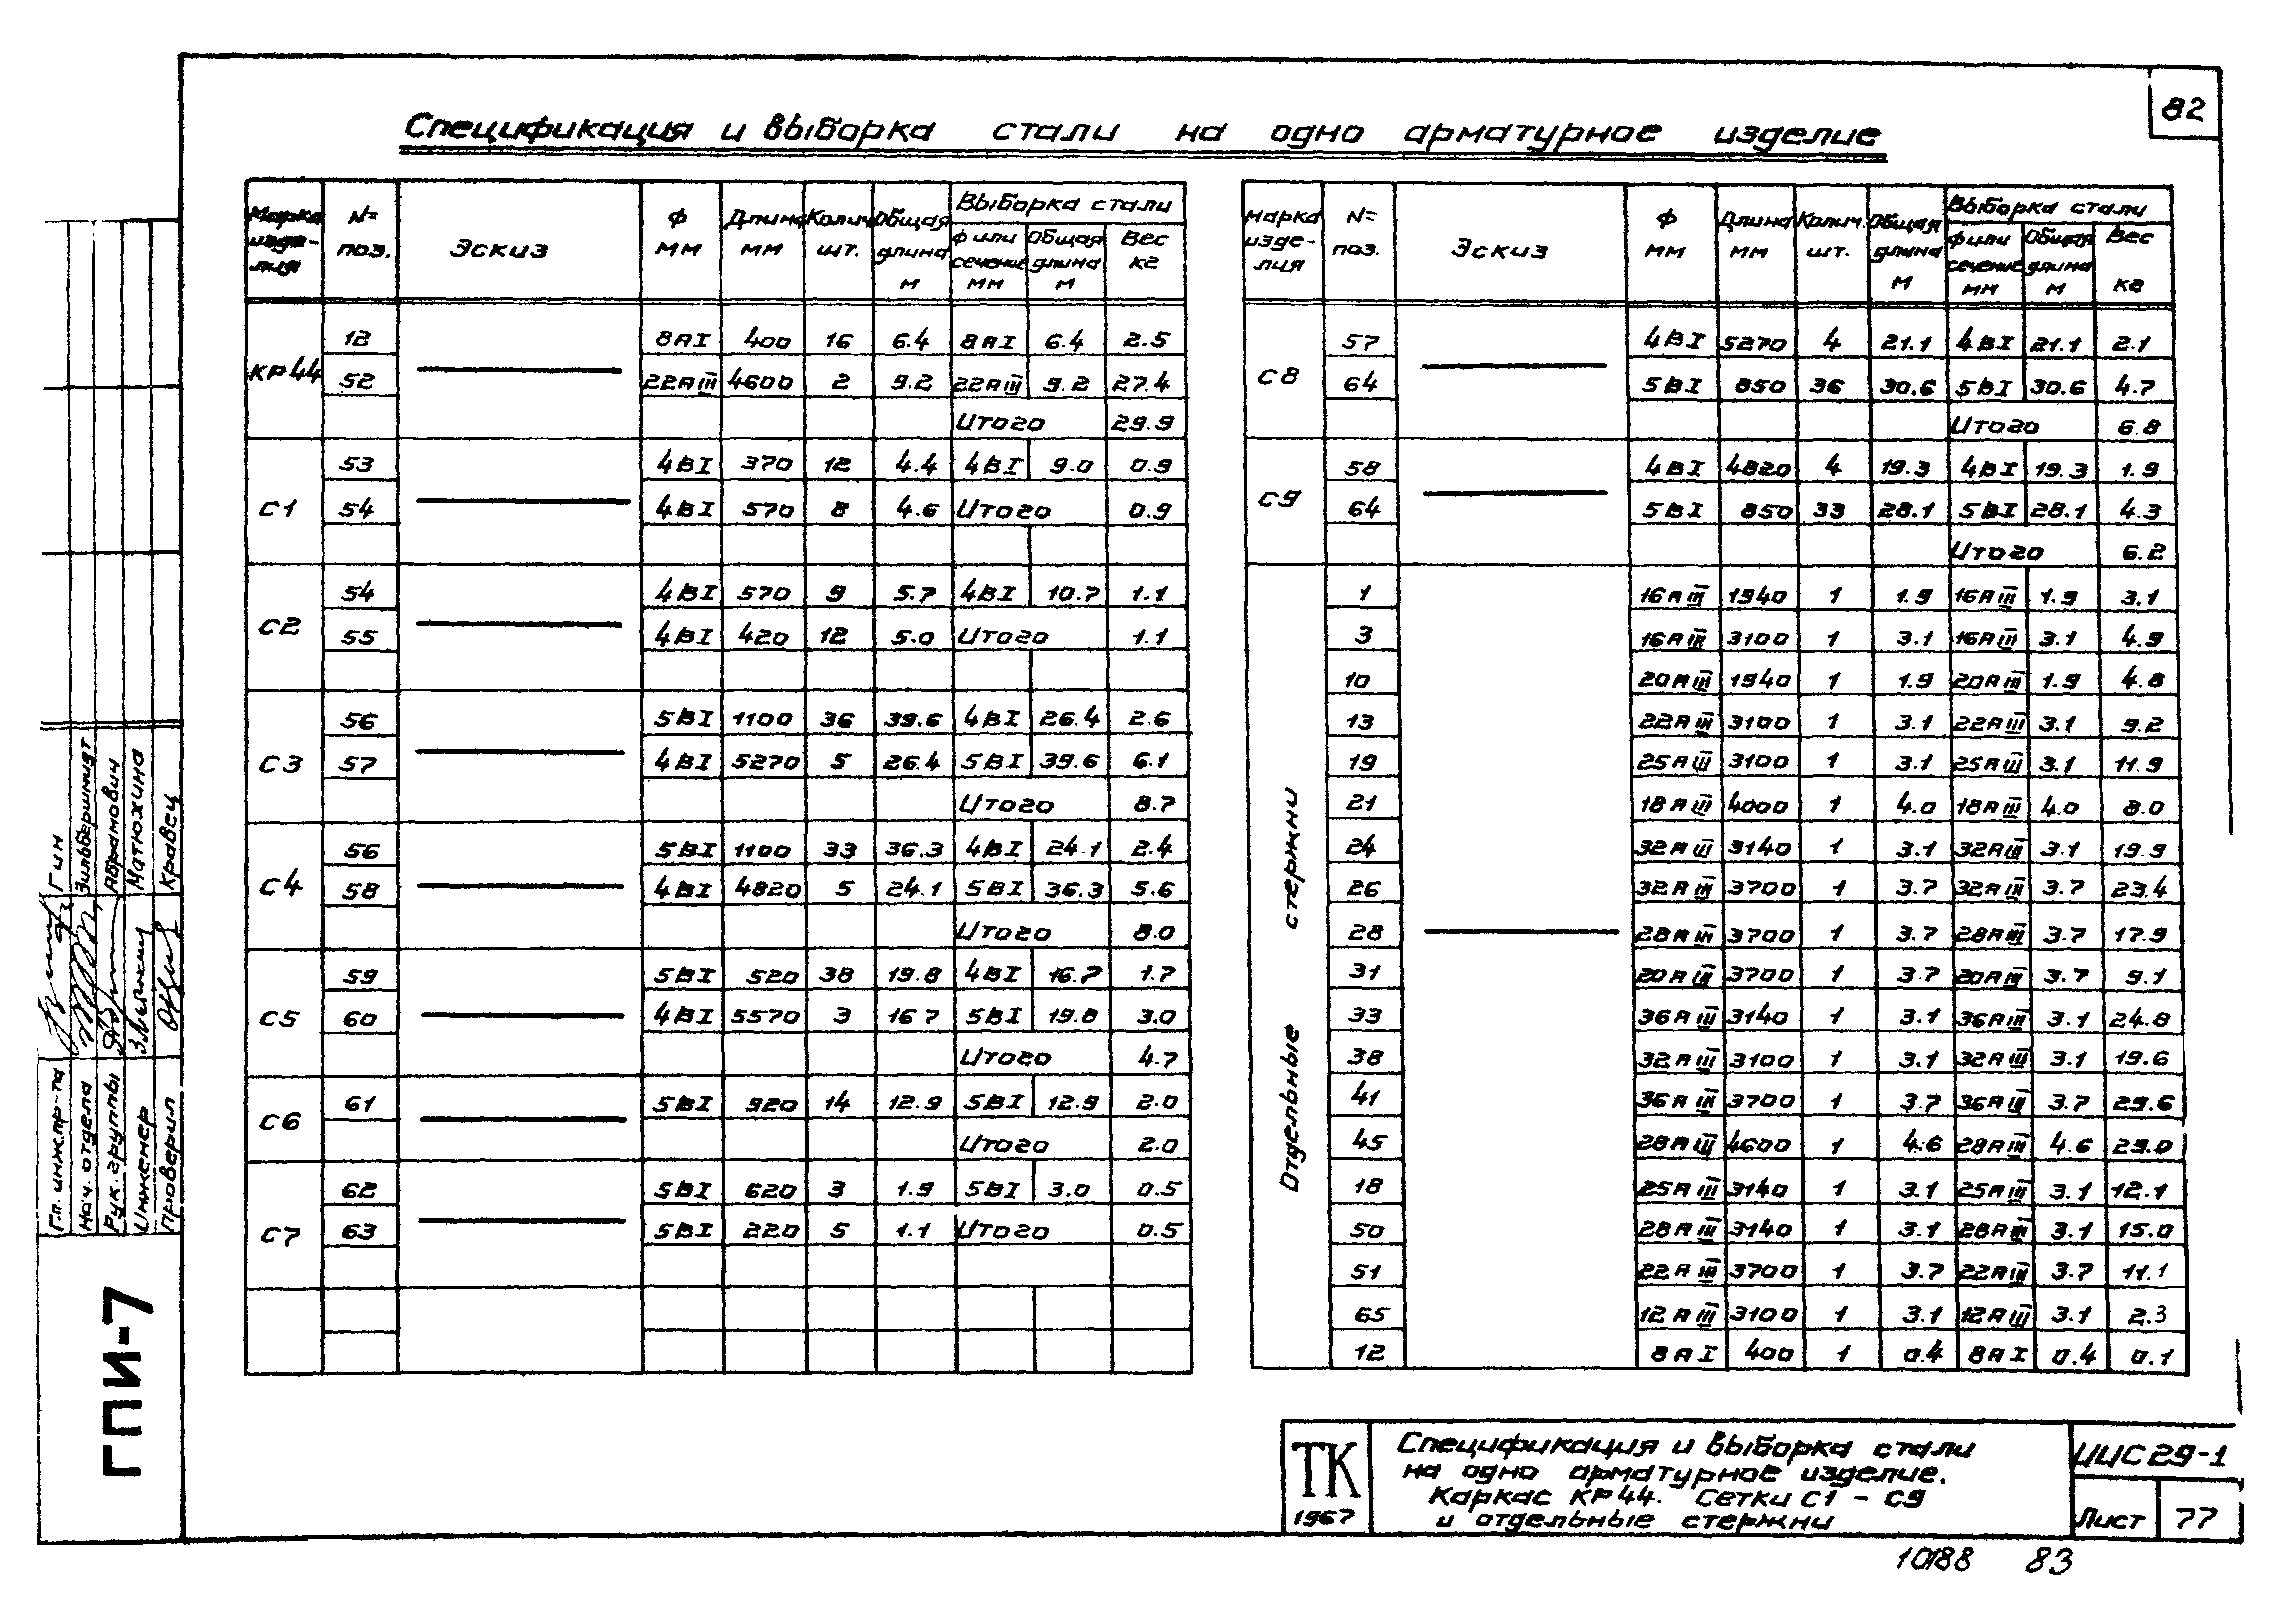 82
Спецификация и выборка стали на одно арматурное изделие
Марка изде-лия | № поз. | Эскиз | Ф мм | Длина мм | Колич. шт. | Общая длина м | Выборка стали | Ф или сечение мм | Общая длина м | Вес кг
КР44 | 12 | 8АI | 400 | 16 | 6.4 | 8АI | 6.4 | 2.5
52 | 22АIII | 4600 | 2 | 9.2 | 22АIII | 9.2 | 27.4
Итого 29.9
С1 | 53 | 4ВI | 370 | 12 | 4.4 | 4ВI | 9.0 | 0.9
54 | 4ВI | 570 | 8 | 4.6 | Итого | 0.9
С2 | 54 | 4ВI | 570 | 9 | 5.7 | 4ВI | 10.7 | 1.1
55 | 4ВI | 420 | 12 | 5.0 | Итого | 1.1
С3 | 56 | 5ВI | 1100 | 36 | 39.6 | 4ВI | 26.4 | 2.6
57 | 4ВI | 5270 | 5 | 26.4 | 5ВI | 39.6 | 6.1
Итого 8.7
С4 | 56 | 5ВI | 1100 | 33 | 36.3 | 4ВI | 24.1 | 2.4
58 | 4ВI | 4820 | 5 | 24.1 | 5ВI | 36.3 | 5.6
Итого 8.0
С5 | 59 | 5ВI | 520 | 38 | 19.8 | 4ВI | 16.7 | 1.7
60 | 4ВI | 5570 | 3 | 16 7 | 5ВI | 19.8 | 3.0
Итого 4.7
С6 | 61 | 5ВI | 920 | 14 | 12.9 | 5ВI | 12.9 | 2.0
Итого 2.0
С7 | 62 | 5ВI | 620 | 3 | 1.9 | 5ВI | 3.0 | 0.5
63 | 5ВI | 220 | 5 | 1.1 | Итого | 0.5
Марка изде-лия | № поз. | Эскиз | Ф мм | Длина мм | Колич. шт. | Общая длина м | Выборка стали | Ф или сечение мм | Общая длина м | Вес кг
С8 | 57 | 4ВI | 5270 | 4 | 21.1 | 4ВI | 21.1 | 2.1
64 | 5ВI | 850 | 36 | 30.6 | 5ВI | 30.6 | 4.7
Итого 6.8
С9 | 58 | 4ВI | 4820 | 4 | 19.3 | 4ВI | 19.3 | 1.9
64 | 5ВI | 850 | 33 | 28.1 | 5ВI | 28.1 | 4.3
Итого 6.2
Отдельные стержни
1 | 16АIII | 1940 | 1 | 1.9 | 16АIII | 1.9 | 3.1
3 | 16АIII | 3100 | 1 | 3.1 | 16АIII | 3.1 | 4.9
10 | 20АIII | 1940 | 1 | 1.9 | 20АIII | 1.9 | 4.8
13 | 22АIII | 3100 | 1 | 3.1 | 22АIII | 3.1 | 9.2
19 | 25АIII | 3100 | 1 | 3.1 | 25АIII | 3.1 | 11.9
21 | 18АIII | 4000 | 1 | 4.0 | 18АIII | 4.0 | 8.0
24 | 32АIII | 3140 | 1 | 3.1 | 32АIII | 3.1 | 19.9
26 | 32АIII | 3700 | 1 | 3.7 | 32АIII | 3.7 | 23.4
28 | 28АIII | 3700 | 1 | 3.7 | 28АIII | 3.7 | 17.9
31 | 20АIII | 3700 | 1 | 3.7 | 20АIII | 3.7 | 9.1
33 | 36АIII | 3140 | 1 | 3.1 | 36АIII | 3.1 | 24.8
38 | 32АIII | 3100 | 1 | 3.1 | 32АIII | 3.1 | 19.6
41 | 36АIII | 3700 | 1 | 3.7 | 36АIII | 3.7 | 29.6
45 | 28АIII | 4600 | 1 | 4.6 | 28АIII | 4.6 | 29.0
18 | 25АIII | 3140 | 1 | 3.1 | 25АIII | 3.1 | 12.1
50 | 28АIII | 3140 | 1 | 3.1 | 28АIII | 3.1 | 15.0
51 | 22АIII | 3700 | 1 | 3.7 | 22АIII | 3.7 | 11.1
65 | 12АIII | 3100 | 1 | 3.1 | 12АIII | 3.1 | 2.3
12 | 8АI | 400 | 1 | 0.4 | 8АI | 0.4 | 0.1
Гл. инж.пр-та Гин
Нач. отдела Зильбершмидт
Рук. группы Абрамович
Инженер Матюхина
Проверил Кравец
ГПИ-7
ТК
1967
Спецификация и выборка стали
на одно арматурное изделие.
Каркас КР44. Сетки С1 - С9
и отдельные стержни
ИИС29-1
Лист 77
10188 83